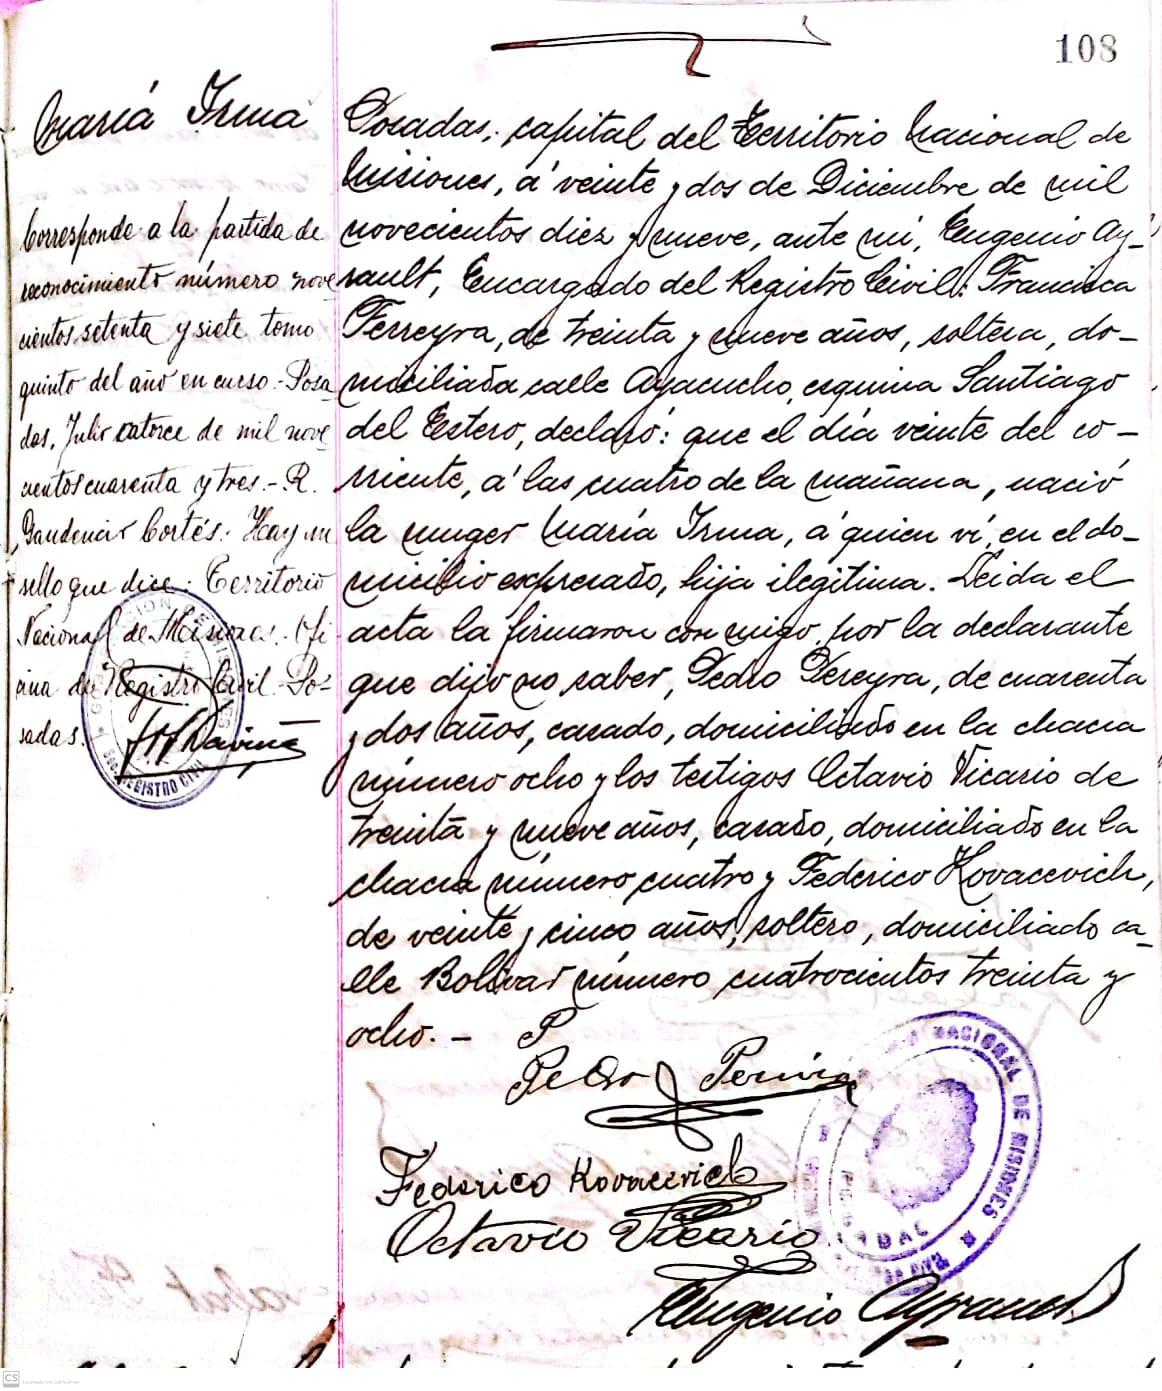 108
María Irma
Corresponde a la partida de
reconocimiento número nove
cientos setenta y siete tomo
quinto del año en curso.- Posa
das, Julio catorce de mil nove
cientos cuarenta y tres.- R.
Gaudencio Cortés.- Hay un
sello que dice: Territorio
Nacional de Misiones. Ofi
cina del Registro Civil.- Po-
sadas.
REGISTRO CIVIL
Posadas, capital del Territorio Nacional de
Misiones, á veinte y dos de Diciembre de mil
novecientos diez y nueve, ante mí, Eugenio Ay-
rault, Encargado del Registro Civil: Francisca
Ferreyra, de treinta y nueve años, soltera, do-
miciliada calle Ayacucho, esquina Santiago
del Estero, declaró: que el día veinte del co-
rriente, á las cuatro de la mañana, nació
la muger María Irma, á quien ví, en el do-
micilio expresado, hija ilegítima. Leida el
acta la firmaron conmigo, por la declarante
que dijo no saber, Pedro Pereyra, de cuarenta
y dos años, casado, domiciliado en la chacra
número ocho y los testigos Octavio Vicario de
treinta y nueve años, casado, domiciliado en la
chacra número cuatro y Federico Kovacevich,
de veinte y cinco años, soltero, domiciliado ca-
lle Bolívar número cuatrocientos treinta y
ocho. - P
Pedro
NACIONAL DE MISIONES
Federico Kovacevich
Octavio Vicario
Eugenio
CS